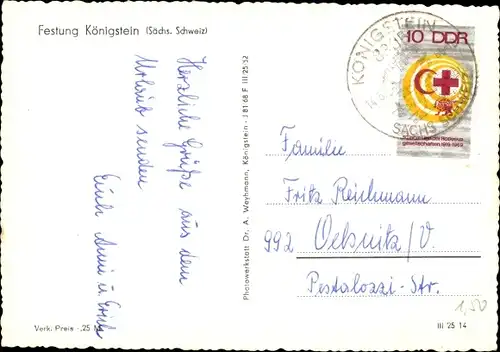 Festung Königstein (Sächs. Schweiz)
Herzliche Grüße aus dem
Urlaub senden
Euch Anni u. Erich
Verk. Preis -.25 M
Photowerkstatt Dr. A. Weyhmann, Königstein - J 81-68 F III/25/52
KÖNIGSTEIN
SÄCHS. SCHWEIZ
10 DDR
Familie
Fritz Reichmann
992 Oelsnitz/V.
Pestalozzi-Str.
1,50
III 25 14